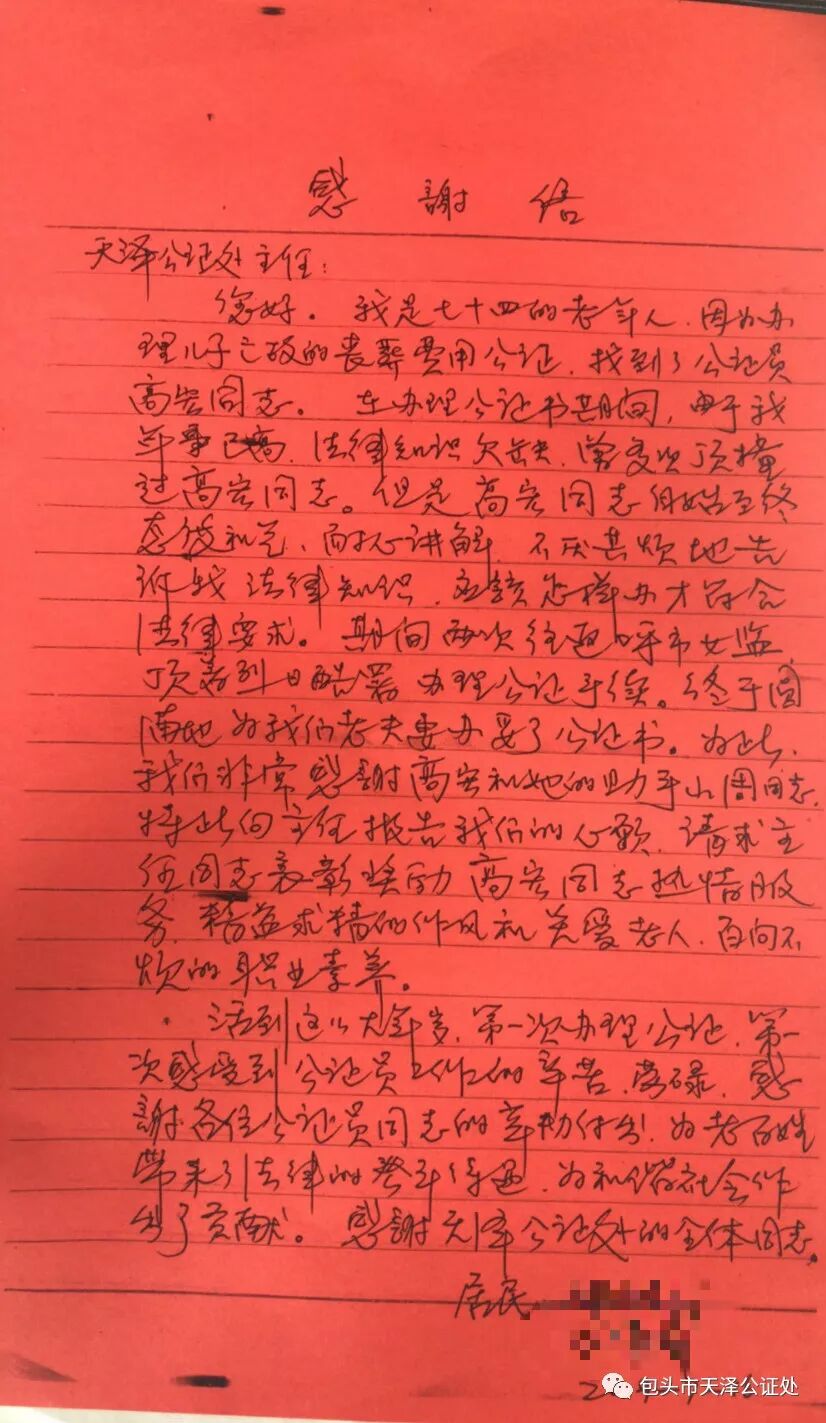 感謝信
天泽公证处主任：
您好。我是七十四的老年人，因为办
理儿子亡故的丧葬费用公证，找到了公证员
高宏同志。在办理公证书期间，由于我
年事已高，法律知识欠缺，曾多次顶撞
过高宏同志。但是高宏同志自始至终
态度和蔼，耐心讲解，不厌其烦地告
诉我法律知识，应该怎样办才符合
法律要求。期间两次往返呼市女监，
顶着烈日酷暑办理公证手续。终于圆
满地为我们老夫妻办妥了公证书。为此，
我们非常感謝高宏和她的助手小周同志，
特此向主任报告我们的心願，请求主
任同志表彰奖励高宏同志热情服
务，精益求精的作风和关爱老人，百问不
烦的职业素养。
活到这么大年岁，第一次办理公证，第一
次感受到公证员工作的辛苦，劳碌，感
謝各位公证员同志的辛勤付出，为老百姓
带来了法律的公平待遇，为和谐社会作
出了贡献。感謝天泽公证处的全体同志。
居民
包头市天泽公证处